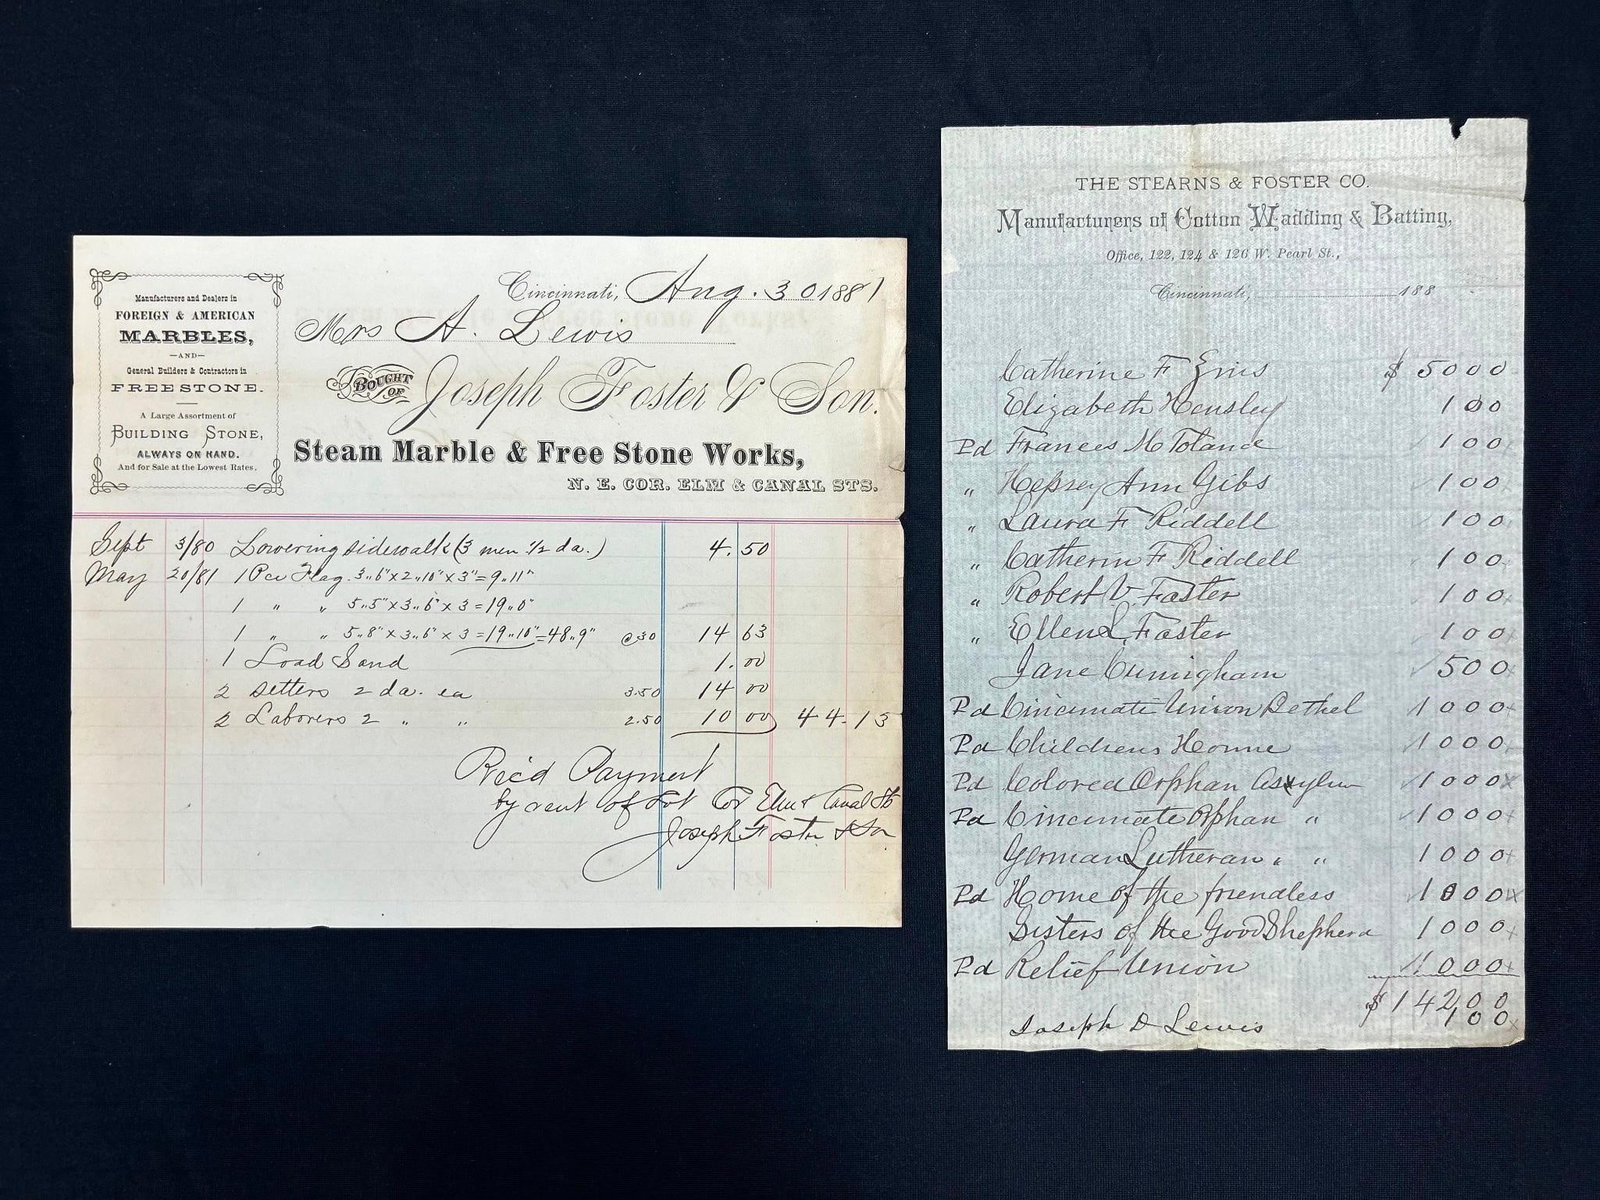 Manufacturers and Dealers in
FOREIGN & AMERICAN
MARBLES,
—AND—
General Builders & Contractors in
FREESTONE.
A Large Assortment of
BUILDING STONE,
ALWAYS ON HAND.
And for Sale at the Lowest Rates.
Cincinnati, Aug. 30 1881
Mrs A. Lewis
BOUGHT OF Joseph Foster & Son.
Steam Marble & Free Stone Works,
N. E. COR. ELM & CANAL STS.
Sept 3/80 Lowering sidewalk (3 men ½ da.) 4.50
May 20/81 1 Pce Flag 3"6"x2"10"x3"=9"11"
1 " " 5"5"x3"6"x3=19"0"
1 " " 5"8"x3"6"x3=19"10"=48"9" @30 14 63
1 Load Sand 1.00
2 Setters 2 da. ea 3.50 14 00
2 Laborers 2 " " 2.50 10 00 44-13
Rec'd Payment
by rent of Lot Cor Elm & Canal Sts
Joseph Foster & Son
THE STEARNS & FOSTER CO.
Manufacturers of Cotton Wadding & Batting,
Office, 122, 124 & 126 W. Pearl St.,
Cincinnati, 188
Catherine F $5000
Elizabeth Hensley 100
Pd Frances M Toland 100
" Hepsey Ann Gibs 100
" Laura F Riddell 100
" Catherin F Riddell 100
" Robert V. Faster 100
" Ellen L. Faster 100
Jane Cunigham 500
Pd Cincinnati Union Bethel 1000
Pd Childrens Home 1000
Pd Colored Orphan Asylum 1000
Pd Cincinnati Orphan " 1000
German Lutheran " " 1000
Pd Home of the friendless 1000
Sisters of the Good Shepherd 1000
Pd Relief Union 1000
$14200
Joseph D Lewis 100